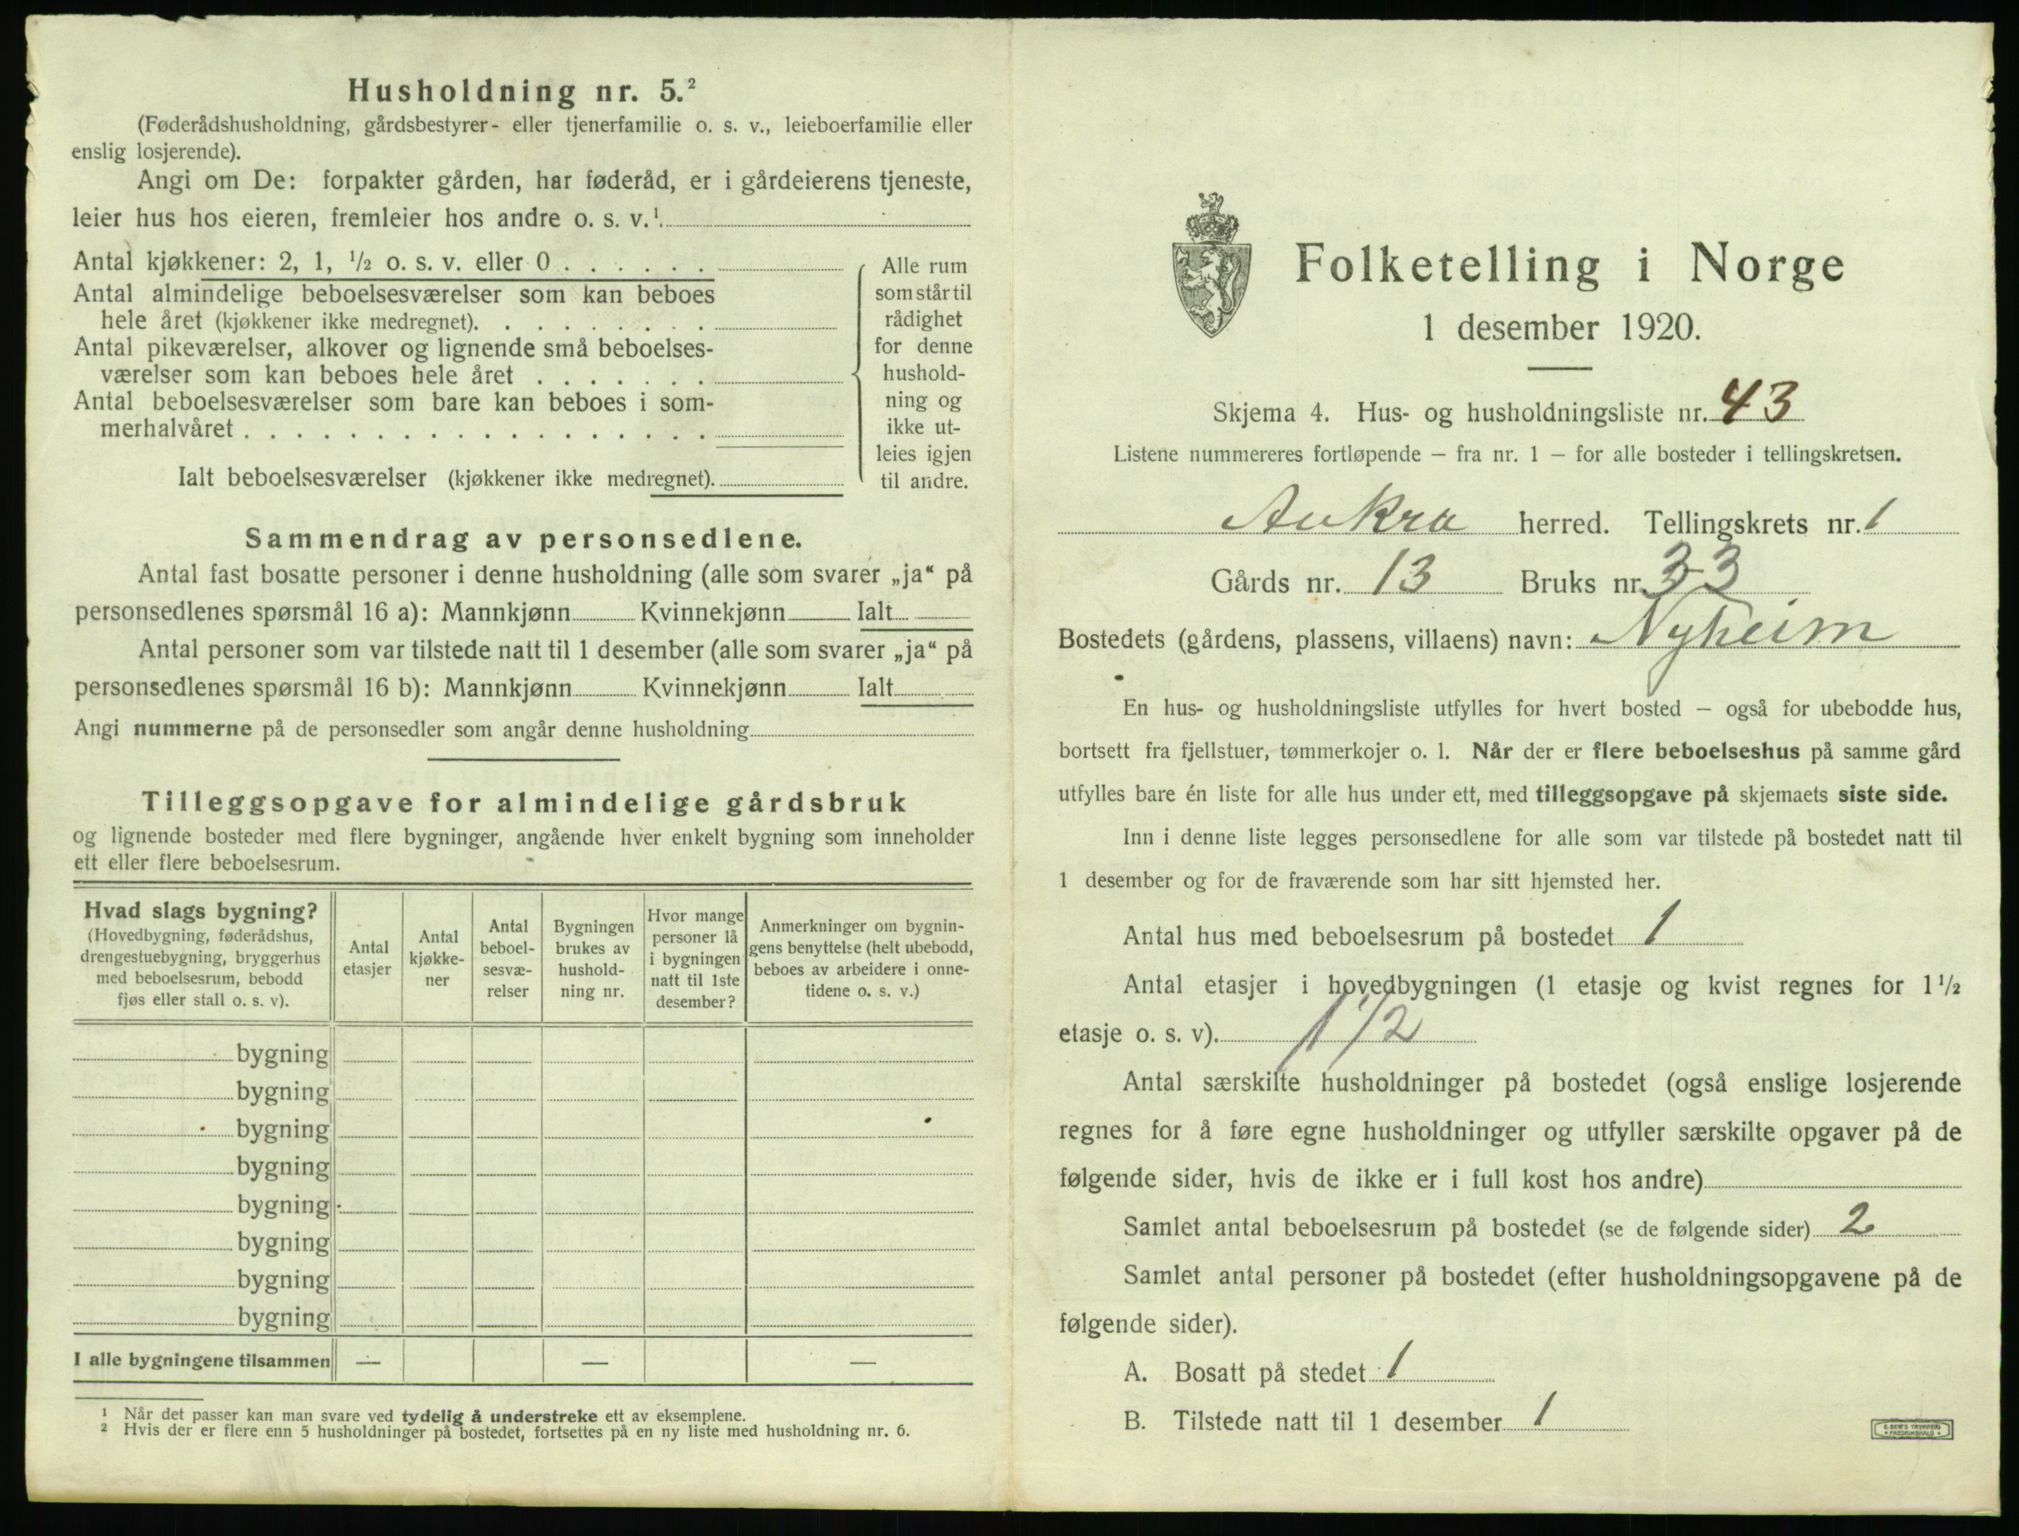 Husholdning nr. 5.²
(Føderådshusholdning, gårdsbestyrer- eller tjenerfamilie o. s. v., leieboerfamilie eller
enslig losjerende).
Angi om De: forpakter gården, har føderåd, er i gårdeierens tjeneste,
leier hus hos eieren, fremleier hos andre o. s. v.¹.
Antal kjøkkener: 2, 1, ½ o. s. v. eller 0 . . . . . .
Antal almindelige beboelsesværelser som kan beboes
hele året (kjøkkener ikke medregnet). . . . . . . . .
Antal pikeværelser, alkover og lignende små beboelses-
værelser som kan beboes hele året . . . . . . .
Antal beboelsesværelser som bare kan beboes i som-
merhalvåret . . . . . . . . . . . . . . . . . .
Ialt beboelsesværelser (kjøkkener ikke medregnet).
Alle rum
som står til
rådighet
for denne
hushold-
ning og
ikke ut-
leies igjen
til andre.
Sammendrag av personsedlene.
Antal fast bosatte personer i denne husholdning (alle som svarer „ja“ på
personsedlenes spørsmål 16 a): Mannkjønn Kvinnekjønn Ialt
Antal personer som var tilstede natt til 1 desember (alle som svarer „ja“ på
personsedlenes spørsmål 16 b): Mannkjønn Kvinnekjønn Ialt
Angi nummerne på de personsedler som angår denne husholdning
Tilleggsopgave for almindelige gårdsbruk
og lignende bosteder med flere bygninger, angående hver enkelt bygning som inneholder
ett eller flere beboelsesrum.
Hvad slags bygning?
(Hovedbygning, føderådshus,
drengestuebygning, bryggerhus
med beboelsesrum, bebodd
fjøs eller stall o. s. v).
Antal
etasjer
Antal
kjøkke-
ner
Antal
beboel-
sesvæ-
relser
Bygningen
brukes av
hushold-
ning nr.
Hvor mange
personer lå
i bygningen
natt til 1ste
desember?
Anmerkninger om bygnin-
gens benyttelse (helt ubebodd,
beboes av arbeidere i onne-
tidene o. s. v.)
bygning
bygning
bygning
bygning
bygning
bygning
bygning
bygning
I alle bygningene tilsammen — — —
¹ Når det passer kan man svare ved tydelig å understreke ett av eksemplene.
² Hvis der er flere enn 5 husholdninger på bostedet, fortsettes på en ny liste med husholdning nr. 6.
Folketelling i Norge
1 desember 1920.
Skjema 4. Hus- og husholdningsliste nr. 43
Listene nummereres fortløpende – fra nr. 1 – for alle bosteder i tellingskretsen.
Aukra herred. Tellingskrets nr. 1
Gårds nr. 13 Bruks nr. 33
Bostedets (gårdens, plassens, villaens) navn: Nyheim
En hus- og husholdningsliste utfylles for hvert bosted – også for ubebodde hus,
bortsett fra fjellstuer, tømmerkojer o. l. Når der er flere beboelseshus på samme gård
utfylles bare én liste for alle hus under ett, med tilleggsopgave på skjemaets siste side.
Inn i denne liste legges personsedlene for alle som var tilstede på bostedet natt til
1 desember og for de fraværende som har sitt hjemsted her.
Antal hus med beboelsesrum på bostedet 1
Antal etasjer i hovedbygningen (1 etasje og kvist regnes for 1½
etasje o. s. v). 1 1/2
Antal særskilte husholdninger på bostedet (også enslige losjerende
regnes for å føre egne husholdninger og utfyller særskilte opgaver på de
følgende sider, hvis de ikke er i full kost hos andre)
Samlet antal beboelsesrum på bostedet (se de følgende sider) 2
Samlet antal personer på bostedet (efter husholdningsopgavene på de
følgende sider).
A. Bosatt på stedet 1
B. Tilstede natt til 1 desember 1